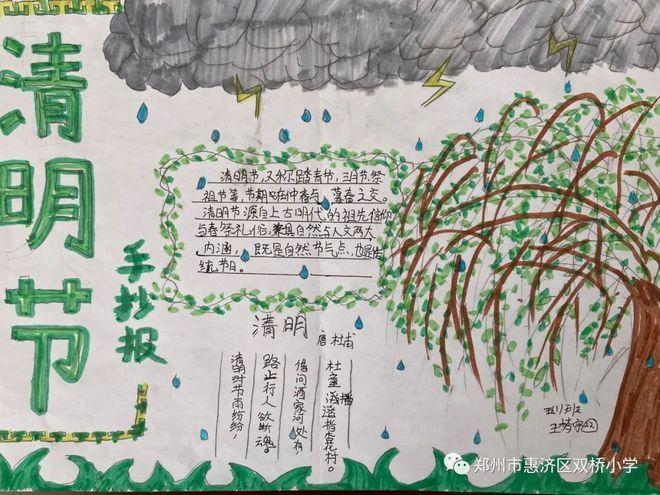 清明节
手抄报
清明节，又称踏青节、三月节、祭
祖节等，节期在仲春与暮春之交。
清明节源自上古时代的祖先信仰
与春祭礼俗，兼具自然与人文两大
内涵，既是自然节气点，也是传
统节日。
清明
唐 杜甫
清明时节雨纷纷，
路上行人欲断魂。
借问酒家何处有
牧童遥指杏花村。
郑州市惠济区双桥小学